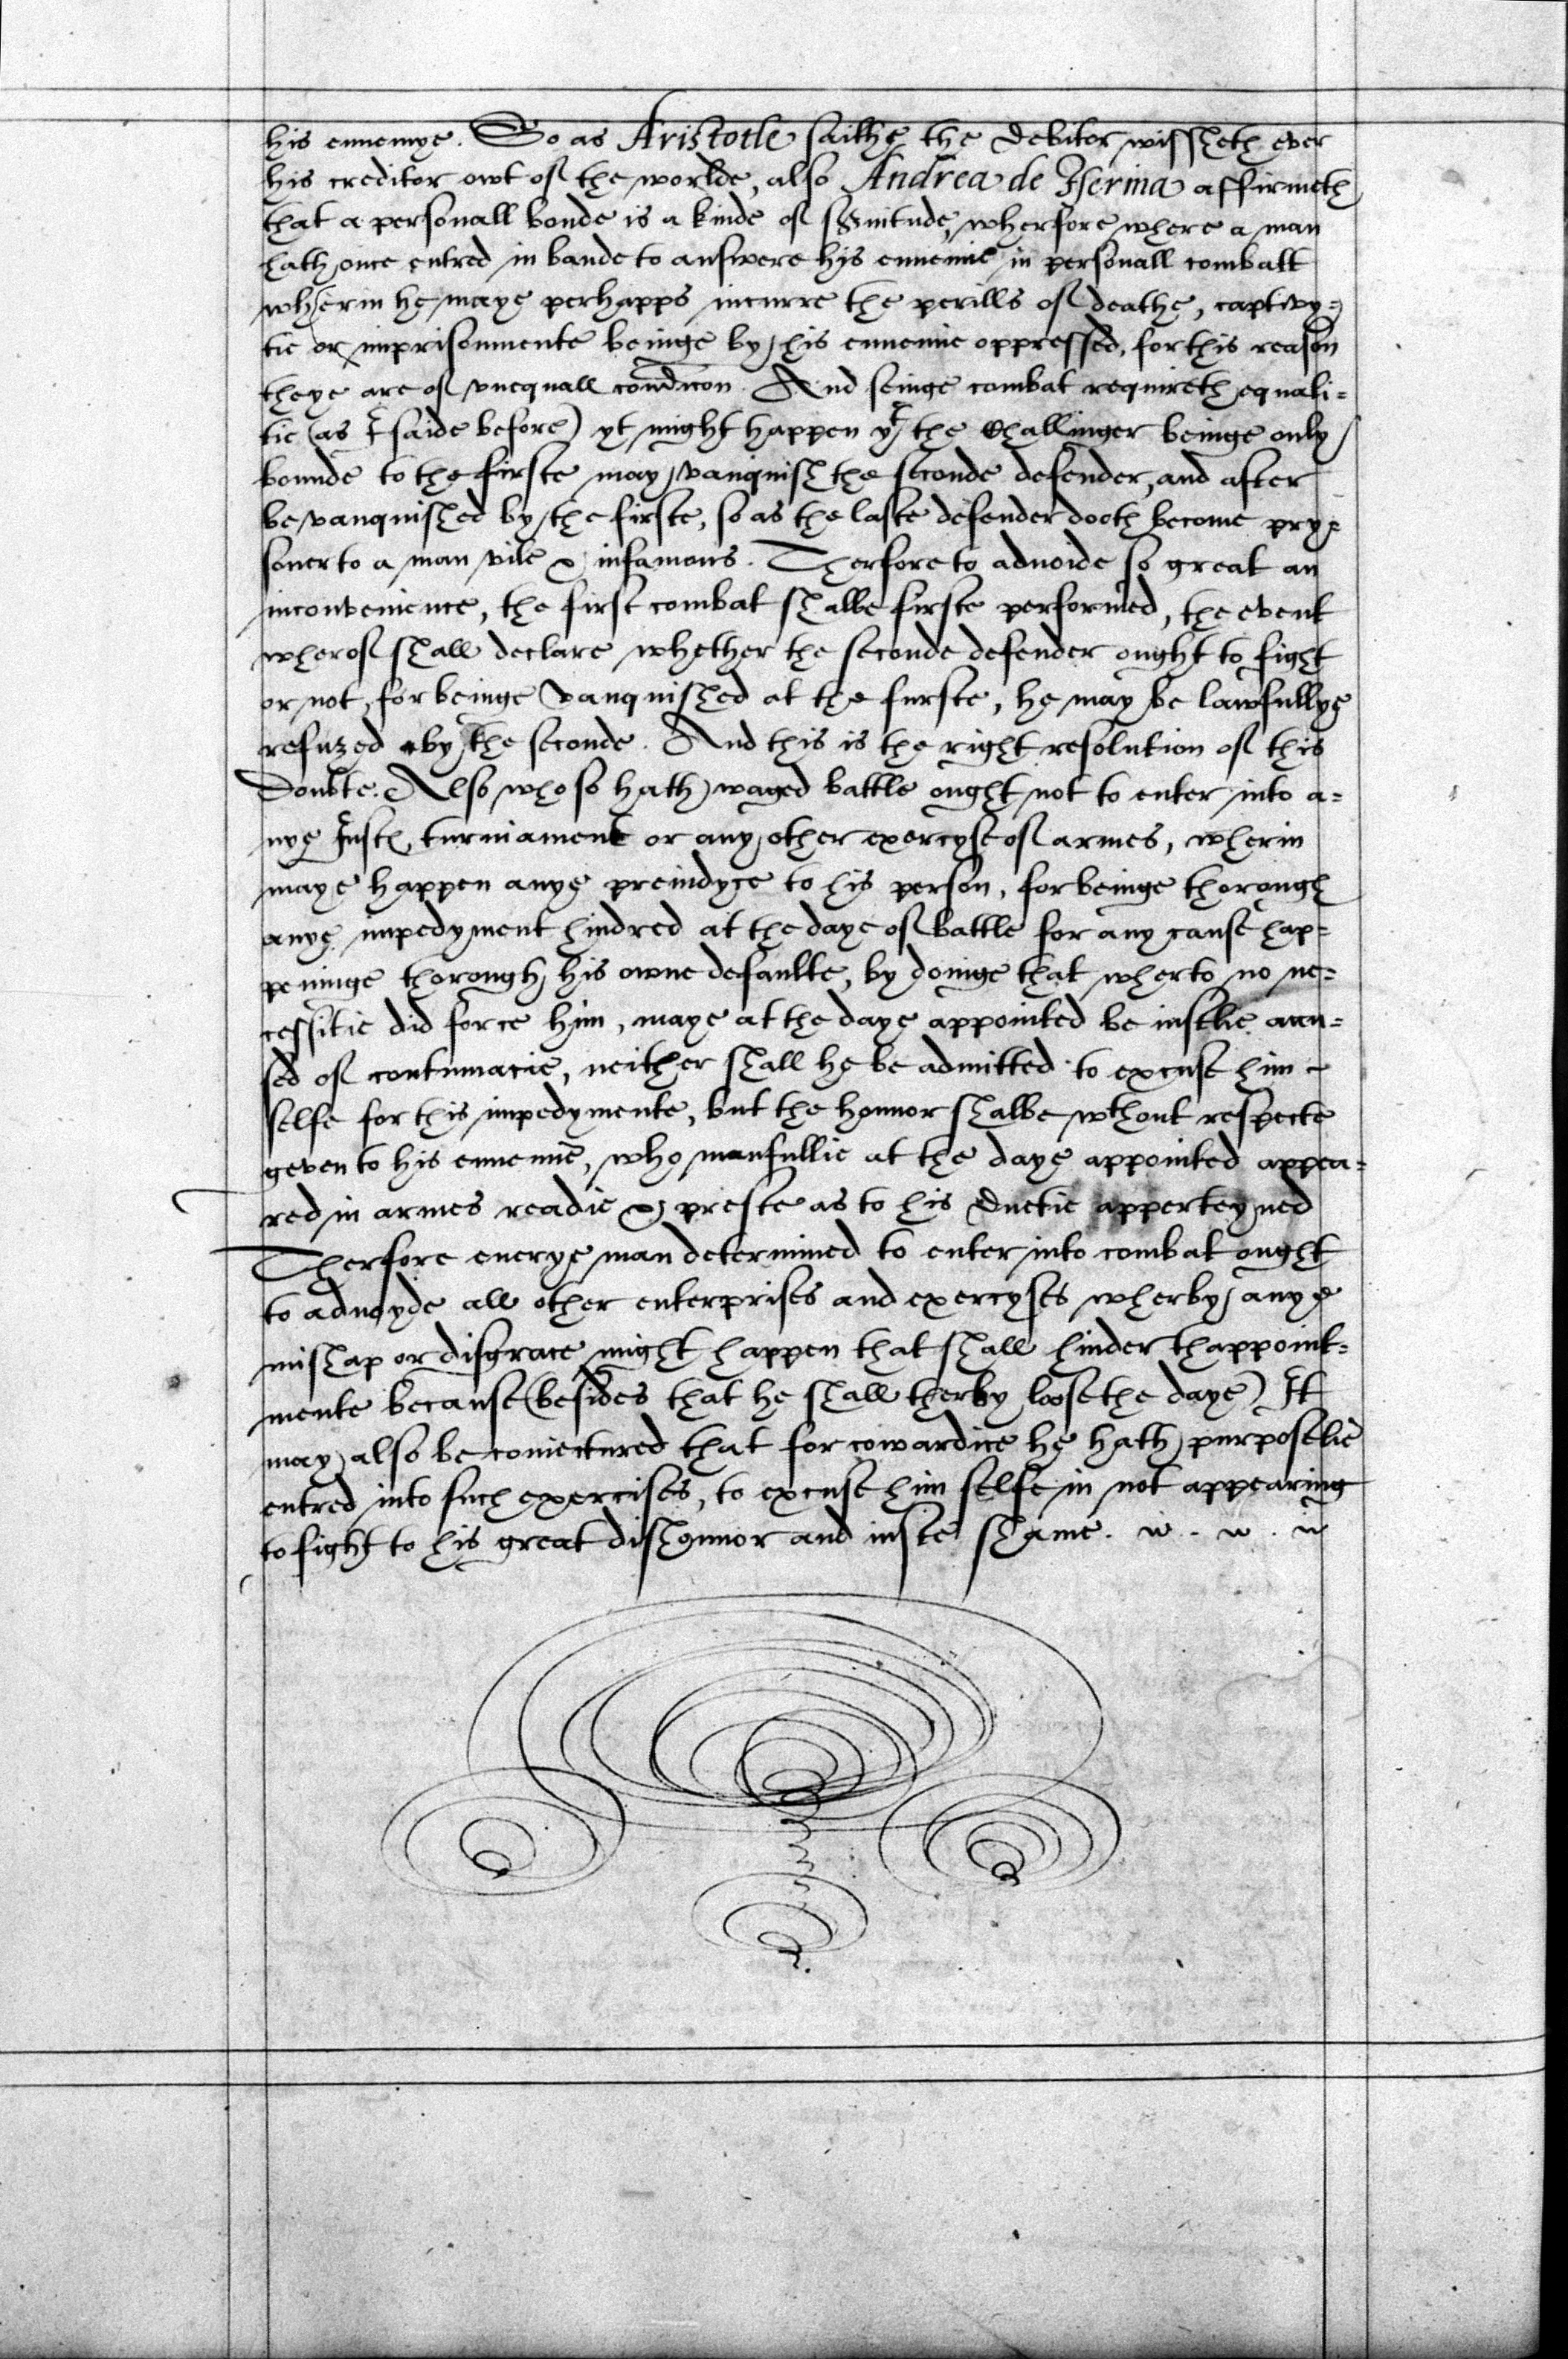 his ennemye. So as Aristotle saithe the Debitor wissheth ever
his creditor owt of the worlde, also Andrea de Iserina affirmeth
that a personall bonde is a kinde of seruitude, wherfore where a man
hath once entred in bande to answere his ennemie in personall combatt
wherin he maye perhapps incurre the perills of deathe, captivy=
tie or imprisonmente beinge by his ennemie oppressed, for this reason
theye are of vnequall condicon. And seinge combat requireth equali=
tie (as I saide before) yt might happen yt the Challinger beinge only
bounde to the firste may vanquish the seconde defender, and after
be vanquished by the firste, so as the laste defender dooth become pry=
soner to a man vile & infamous. Therfore to aduoide so great an
inconvenience, the first combat shalbe firste performed, the event
wherof shall declare whether the seconde defender ought to fight
or not, for beinge vanquished at the furste, he may be lawfullye
refuzed by the seconde. And this is the right resolution of this
Doubte. Also who so hath waged battle ought not to enter into a=
nye Iusth, turniament or any other exercyse of armes, wherin
maye happen anye preiudyce to his person, for beinge thorough
anye impedyment hindred at the daye of battle for any cause hap=
peninge thorough his owne defaulte, by doinge that wherto no ne=
cessitie did force him, maye at the daye appointed be iustlie accu=
sed of contumacie, neither shall he be admitted to excuse him
selfe for this impedymente, but the honnor shalbe wthout respecte
geven to his ennemie, who manfullie at the daye appointed appea=
red in armes readie & preste as to his Duetie apperteyned
Therfore euerye man determined to enter into combat ought
to aduoyde all other enterprises and exercyses wherby anye
mishap or disgrace might happen that shall hinder thappoint=
mente because (besides that he shall therby loose the daye) It
may also be coniectured that for cowardice he hath purposelie
entred into such exercises, to excuse him selfe in not appearing
to fight to his great dishonnor and iuste shame.